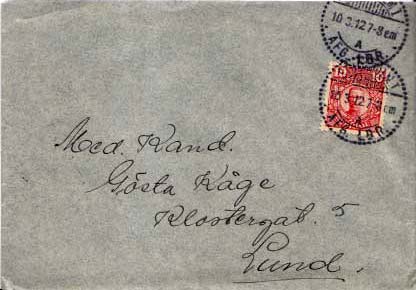 10 3.12 7-8 em
A
AFG. LBR.
10 10
10 3.12 7-8 em
A
AFG. LBR.
Med. Kand.
Gösta Kåge
Klostergat. 5
Lund.